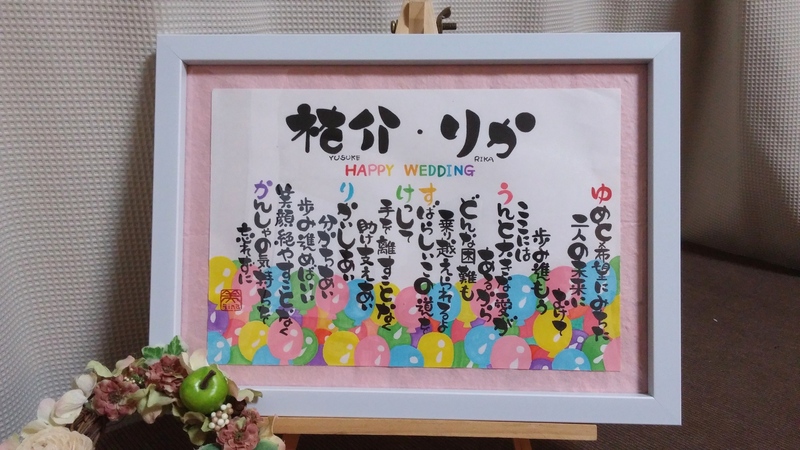 祐介・りか
YUSUKE RIKA
HAPPY WEDDING
ゆめと希望にみちた
二人の未来に
むけて
歩み進もう
ここには
うんと大きな愛が
あるから
どんな困難も
乗り越えられるよ
すばらしいこの道を
けっして
手を離すことなく
助け支えあい
りかいしあい
分かちあい
歩み進めばいい
笑顔絶やすことなく
かんしゃの気持ちを
忘れずに